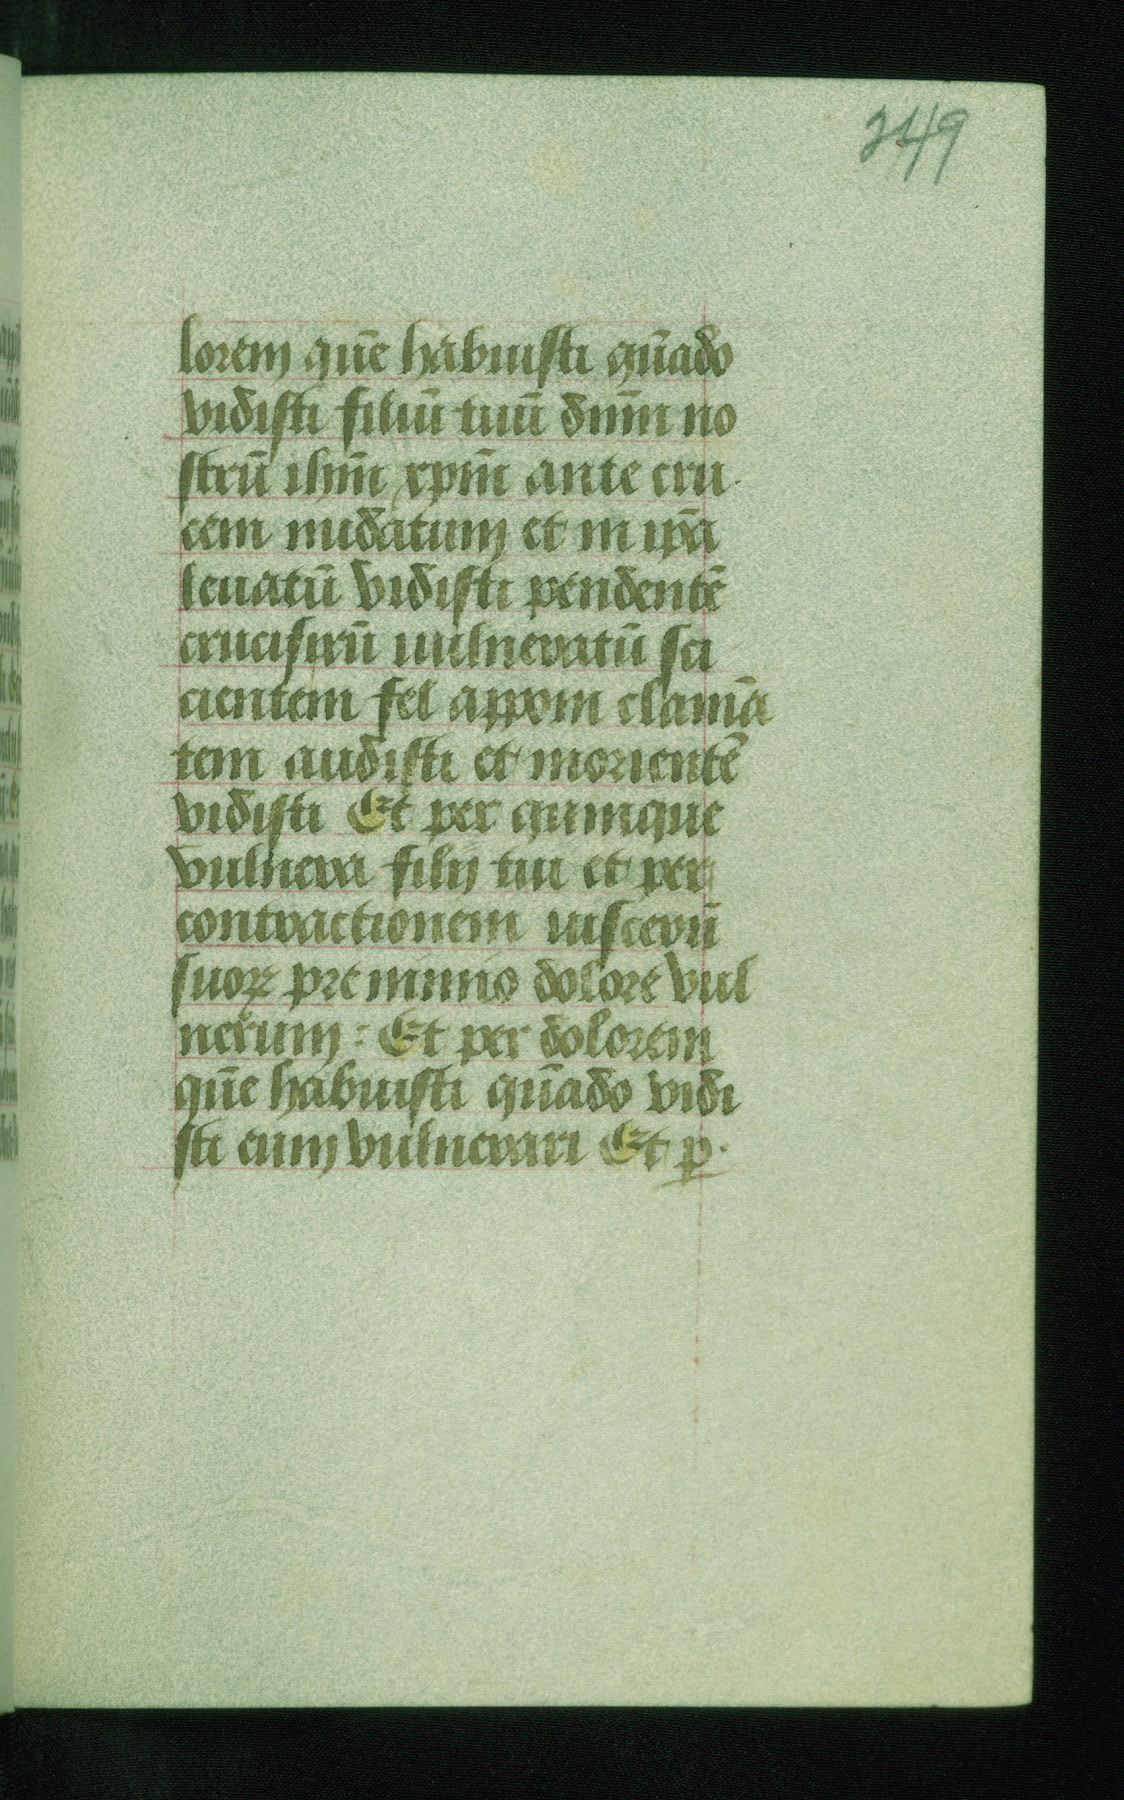 249
lorem que̅ habuisti qn̅ado
vidisti filiu̅ tuu̅ dn̅m no
stru̅ ihm̅ xpm̅ ante cru
cem nudatum et in ip̅a
leuatu̅ vidisti pendente̅
crucifixu̅ uulneratu̅ sci
cientem fel appom clama̅
tem audisti et moriente̅
vidisti Et per quinque
vulnera filij tui et per
contractionem uisceru̅
suoꝝ pre nimio dolore vul
nerum : Et per dolorem
que̅ habuisti qn̅ado vidi
sti eum vulnerari Et ꝑ